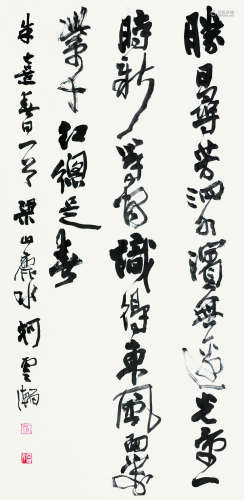 勝日尋芳泗水濱無邊光景一
時新等閒識得東風面萬
紫千紅總是春
朱熹春日一首梁山麗水柯雲瀚